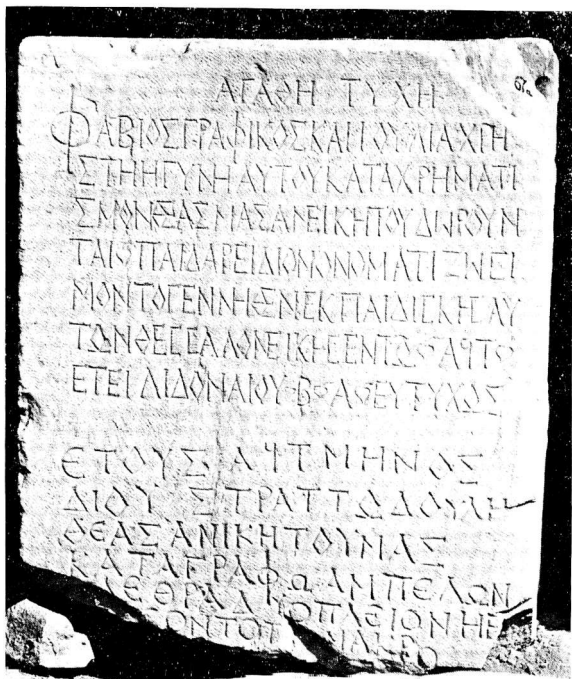 ΑΓΑΘΗ ΤΥΧΗ
ΦΑΒΙΟΣ ΓΡΑΦΙΚΟΣ ΚΑΙ ΙΟΥΛΙΑ ΧΡΗ
ΣΤΗ Η ΓΥΝΗ ΑΥΤΟΥ ΚΑΤΑ ΧΡΗΜΑΤΙ
ΣΜΟΝ ΘΕΑΣ ΜΑΣ ΑΝΕΙΚΗΤΟΥ ΔΩΡΟΥΝ
ΤΑΙ ΠΑΙΔΑΡΕΙΔΙΟΝ ΟΝΟΜΑΤΙ ΖΩΣΙ
ΜΟΝ ΤΟ ΓΕΝΝΗΘΕΝ ΕΚ ΠΑΙΔΙΣΚΗΣ ΑΥ
ΤΩΝ ΘΕΣΣΑΛΟΝΕΙΚΗΣ ΕΝ ΤΩ ΑϘΤ
ΕΤΕΙ ΑΙΔΟΝΑΙΟΥ Β ΕΥΤΥΧΩΣ
ΕΤΟΥΣ ΑϘΤ ΜΗΝΟΣ
ΔΙΟΥ ΣΤΡΑΤΤΩ ΔΟΥΛΗ
ΘΕΑΣ ΑΝΙΚΗΤΟΥ ΜΑΣ
ΚΑΤΑΓΡΑΦΩ ΑΜΠΕΛΩΝ
ΠΛΕΘΡΑ ΠΛΕΙΟΝ Η Ε
ΜΑΚΡΟ